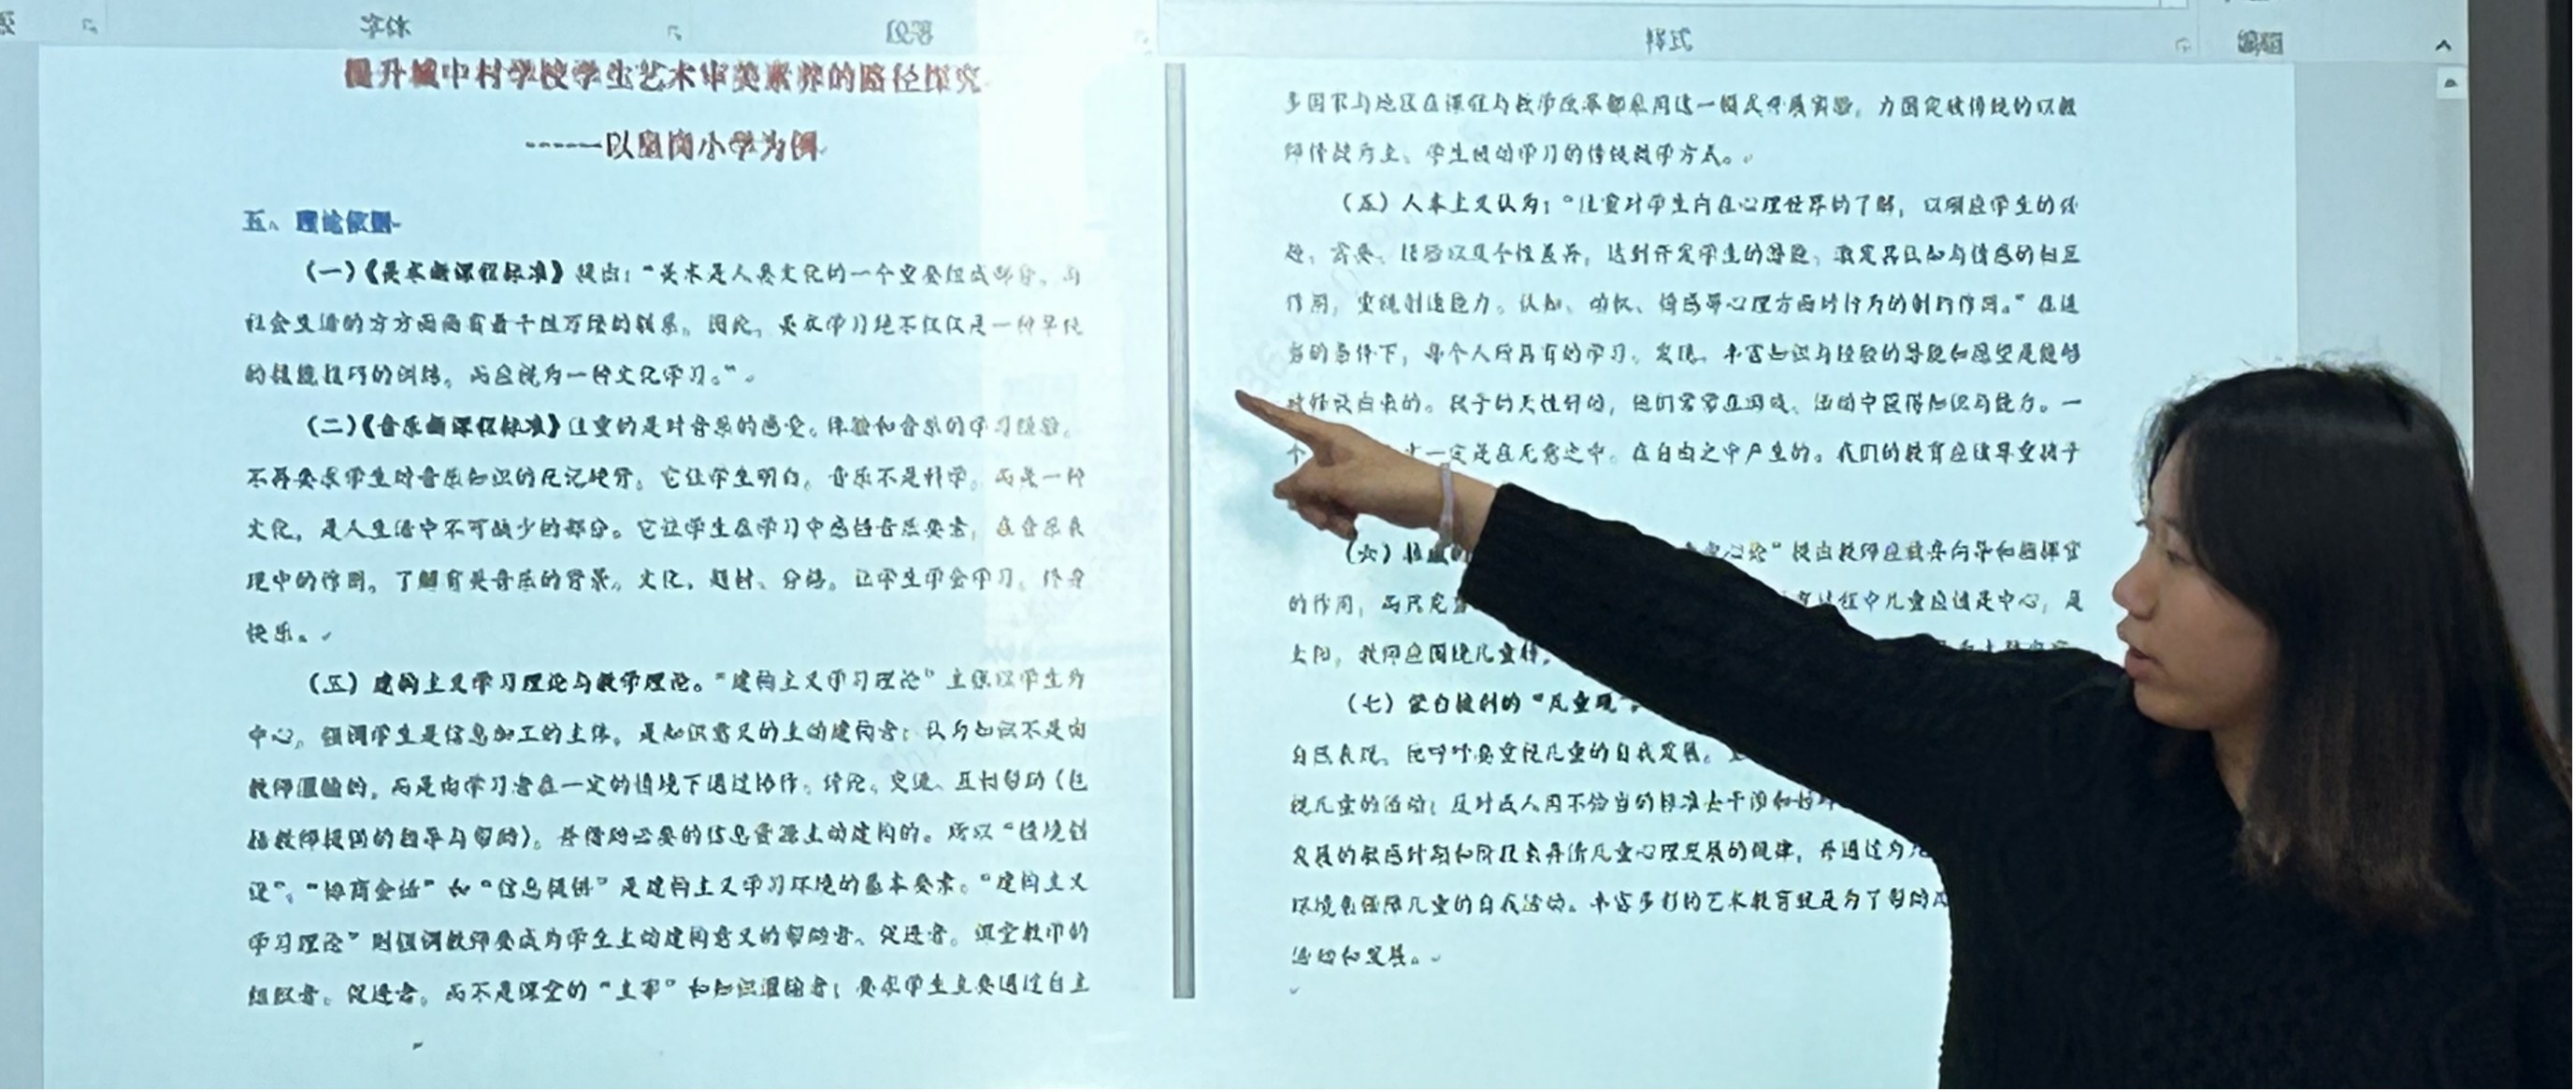 字体
段落
样式
编辑
提升城中村学校学生艺术审美素养的路径探究
------以 岗小学为例
五、理论依据
（一）《美术新课程标准》提出：“美术是人类文化的一个重要组成部分，与
社会生活的方方面面有着千丝万缕的联系。因此，美术学习绝不仅仅是一种单纯
的技能技巧的训练，而应视为一种文化学习。”。
（二）《音乐新课程标准》注重的是对音乐的感受、体验和音乐的学习经验。
不再要求学生对音乐知识的死记硬背。它让学生明白，音乐不是科学，而是一种
文化，是人生活中不可缺少的部分。它让学生在学习中感悟音乐要素，在音乐表
现中的作用。了解有关音乐的背景、文化、题材、分路。让学生学会学习，终身
快乐。
（三）建构主义学习理论与教学理论。“建构主义学习理论”主张以学生为
中心，强调学生是信息加工的主体，是知识意义的主动建构者；认为知识不是由
教师灌输的，而是由学习者在一定的情境下通过协作、讨论、交流、互相帮助（包
括教师提供的指导与帮助），并借助必要的信息资源主动建构的。所以“情境创
设”，“协商会话”和“信息提供”是建构主义学习环境的基本要素。“建构主义
学习理论”则强调教师要成为学生主动建构意义的帮助者、促进者，课堂教学的
组织者、促进者，而不是课堂的“主宰”和知识灌输者；要求学生主要通过自主
多国家与地区在课程与教学改革都应用这一模式开展实验，力图突破传统的以教
师传授为主、学生被动学习的传统教学方式。
（五）人本主义认为：“注重对学生内在心理世界的了解，以顺应学生的
需要、经验以及个性差异，达到开发学生的潜能、激发其认知与情感的相互
作用，重视创造能力、认知、动机、情感等心理方面对行为的制约作用。”在适
当的条件下，每个人所具有的学习、发现、丰富知识与经验的潜能和愿望是能够
释放出来的。孩子的天性好动，他们常常在游戏、活动中获得知识与能力。一
个 一定是在无意之中，在自由之中产生的。我们的教育应该尊重孩子
（六） 中心论”提出教师应该是向导和指挥官
的作用，而 过程中儿童应该是中心，是
太阳，教师应围绕儿童转，
（七）蒙台梭利的“儿童观”，
自然表现，他呼吁要重视儿童的自我发展。
视儿童的活动；反对成人用不恰当的标准去干涉和
发展的敏感时期和阶段来弄清儿童心理发展的规律，并通过为
环境来保障儿童的自我活动。丰富多彩的艺术教育就是为了帮助
活动和发展。